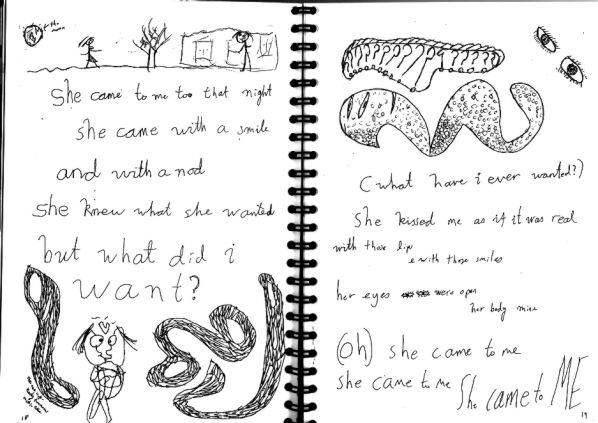 She came to me too that night
she came with a smile
and with a nod
she knew what she wanted
but what did i
want?
18
(what have i ever wanted?)
she kissed me as if it was real
with those lips
& with those smiles
her eyes were open
her body mine
(oh) she came to me
she came to me She came to ME
19